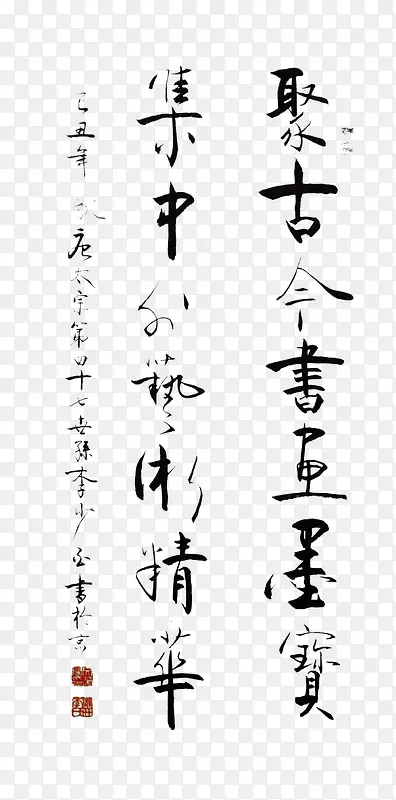 聚古今書画墨寳
集中外藝術精華
己丑年 唐太宗第四十七世孫李少 書於京